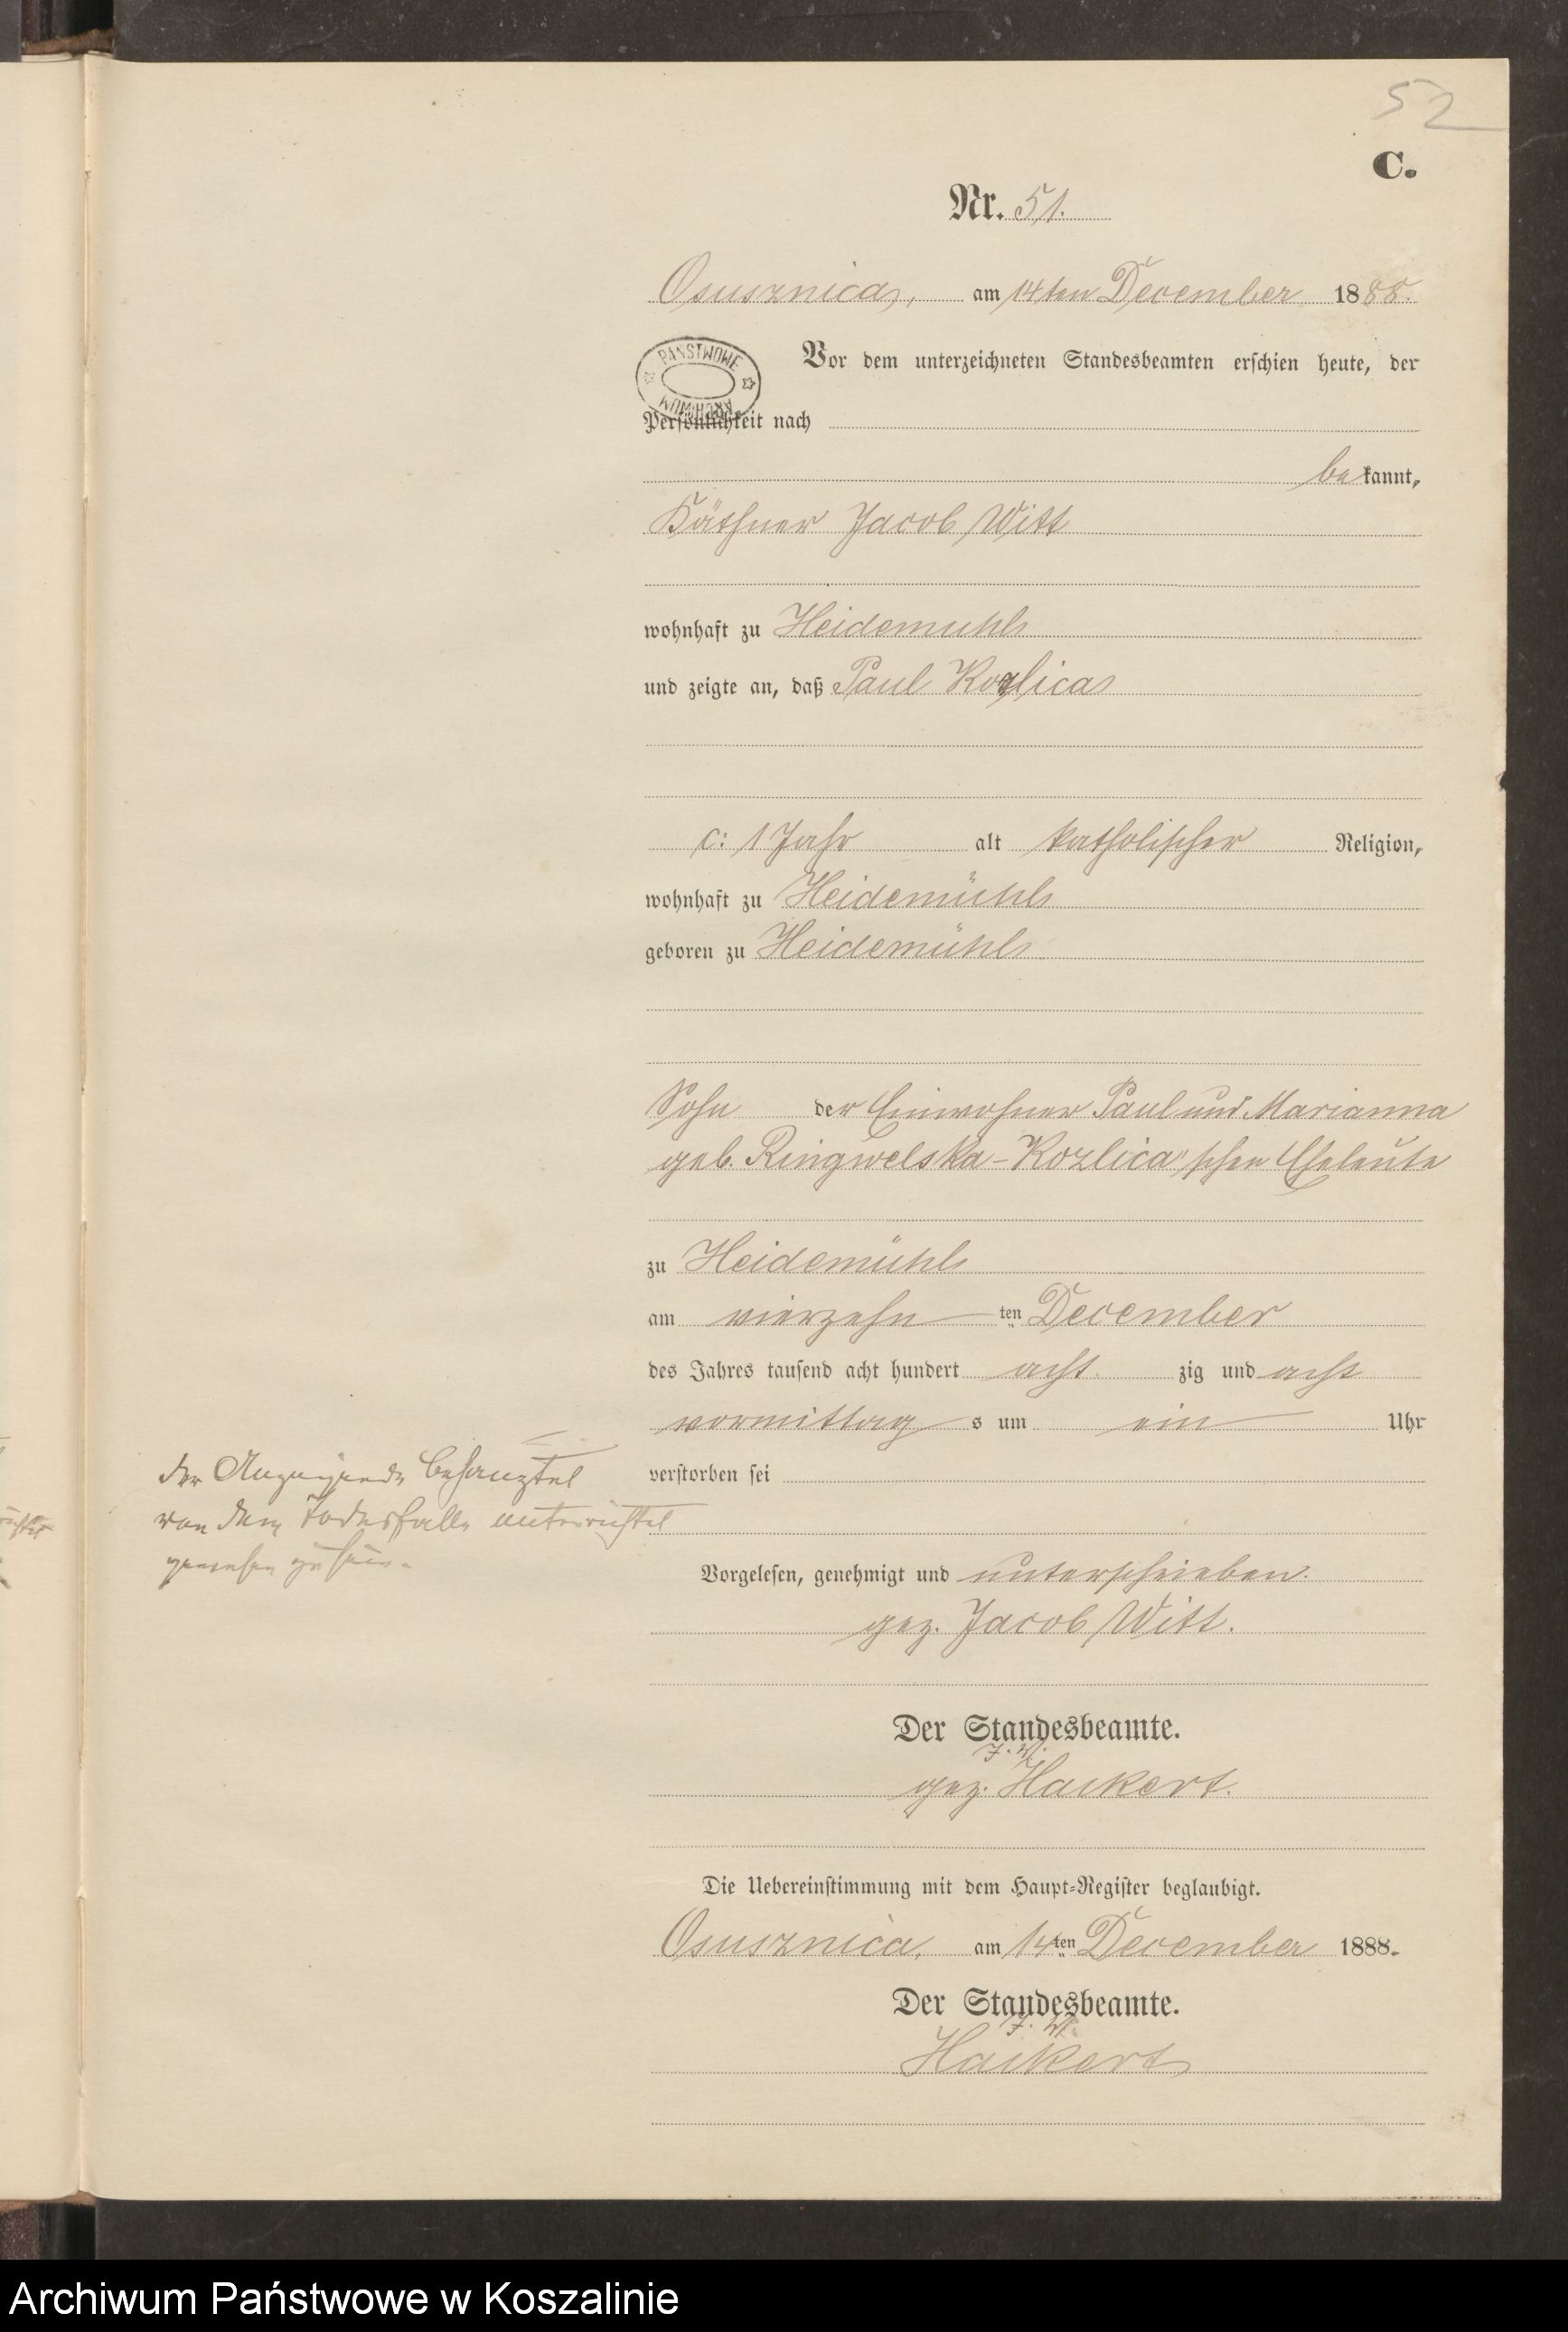 52
C.
Nr. 51.
Osusznica, am 14ten December 1888.
PAŃSTWOWE
ARCHIWUM
Vor dem unterzeichneten Standesbeamten erschien heute, der
Persönlichkeit nach
bekannt,
Käthner Jacob Witt
wohnhaft zu Heidemuhle
und zeigte an, daß Paul Kozlica
c: 1 Jahr alt katholischer Religion,
wohnhaft zu Heidemühle
geboren zu Heidemühle
Sohn der Einwohner Paul und Marianna
geb. Ringwelska-Kozlica"schen Eheleute
zu Heidemühle
am vierzehn ten December
des Jahres tausend acht hundert acht zig und acht
vormittag s um ein Uhr
verstorben sei
der Anzeigende behauptet
von dem Todesfalle unterrichtet
gewesen zu sein.
Vorgelesen, genehmigt und unterschrieben.
gez. Jacob Witt.
Der Standesbeamte.
J. V.
gez. Hackert.
Die Uebereinstimmung mit dem Haupt-Register beglaubigt.
Osusznica, am 14ten December 1888.
Der Standesbeamte.
J. V.
Hackert
Archiwum Państwowe w Koszalinie